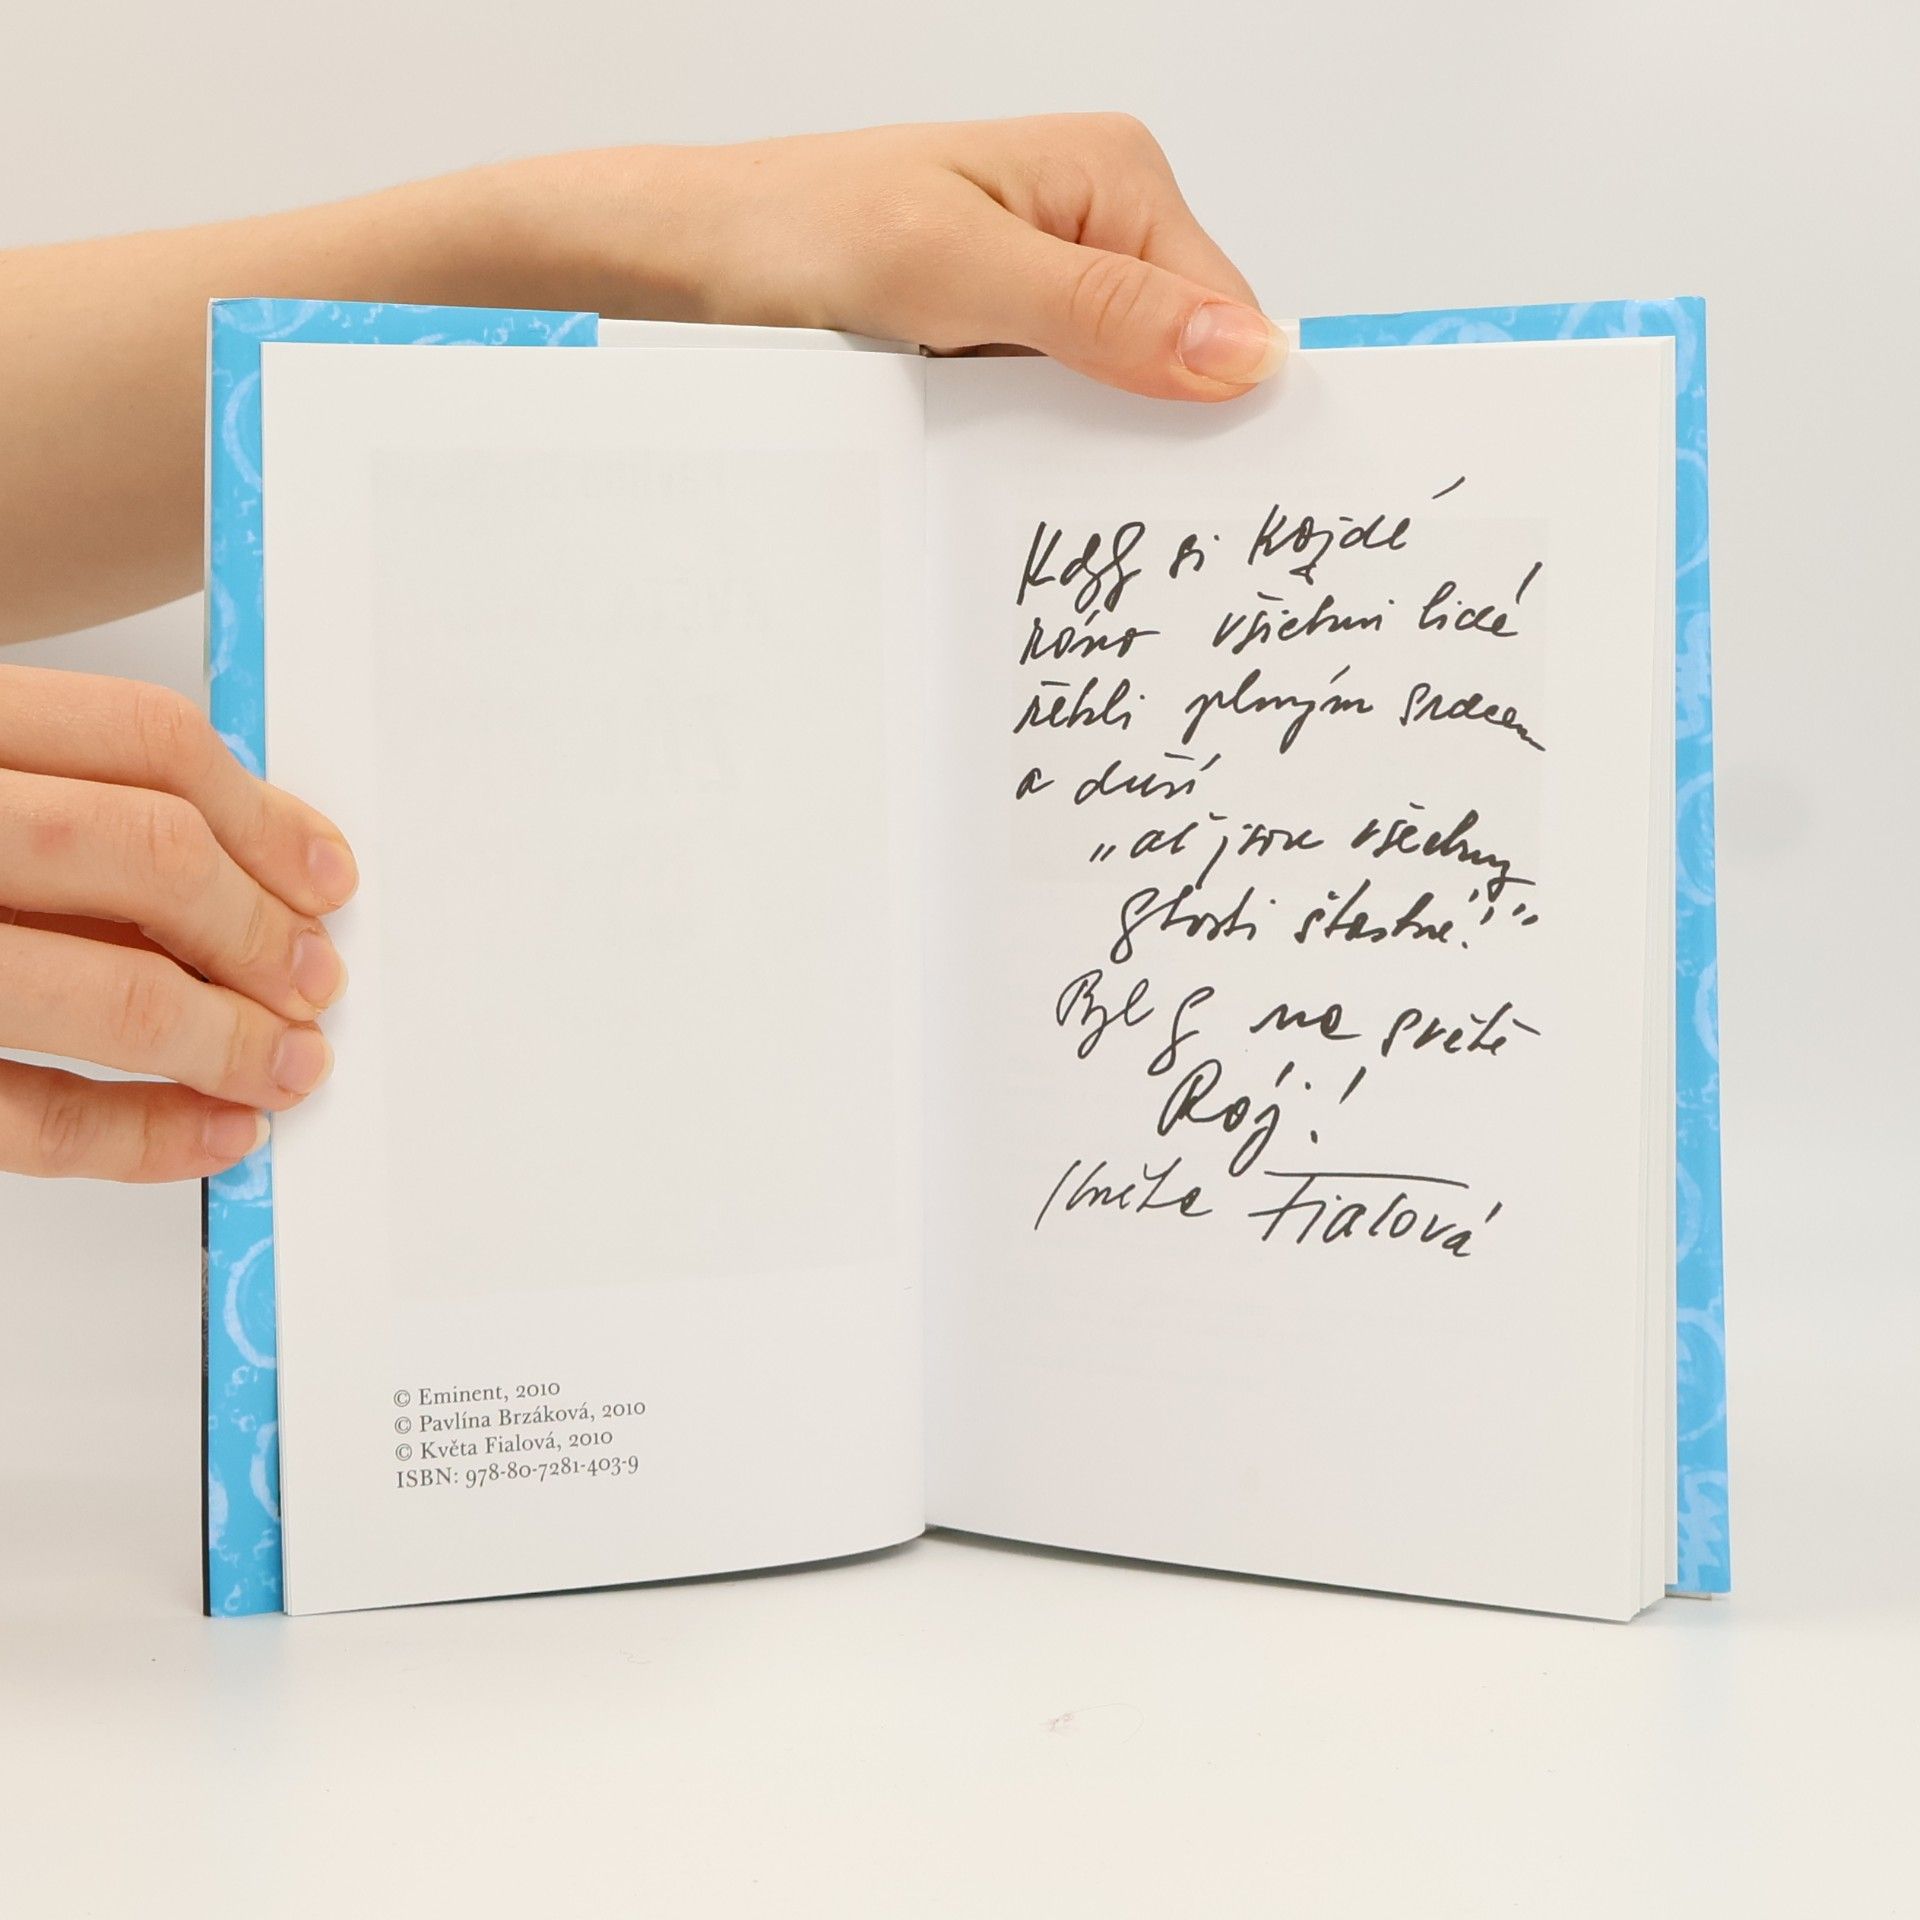 © Eminent, 2010
© Pavlína Brzáková, 2010
© Květa Fialová, 2010
ISBN: 978-80-7281-403-9
Kdyby si každé
ráno všichni lidé
řekli plným srdcem
a duší
„ať jsou všechny
bytosti šťastné!"
Byl by na světě
Ráj!
Květa Fialová